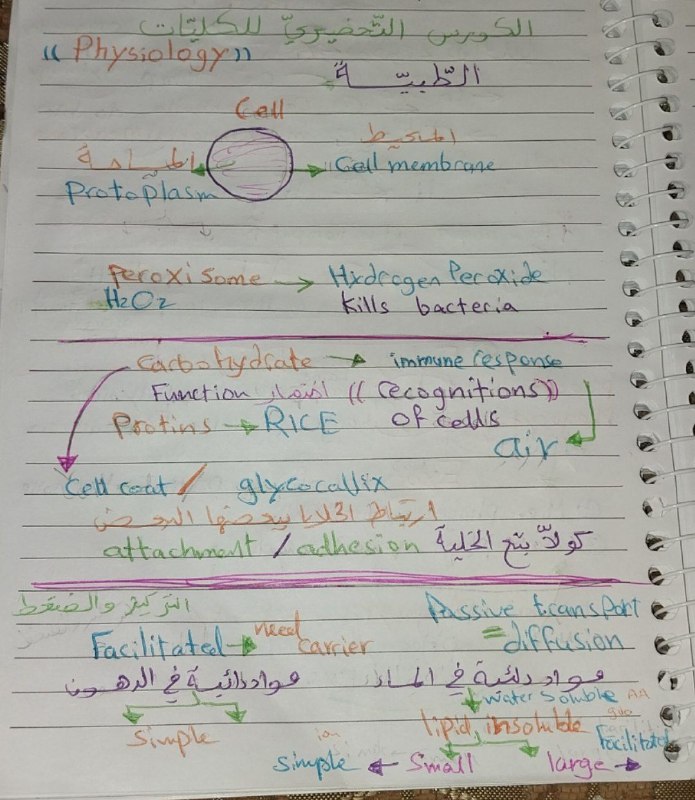 الكورس التّحضيريّ للكليّات
"Physiology"
الطّبيّـــة
Cell
المحيط
Cell membrane
Protoplasm
Peroxisome → Hydrogen Peroxide
H2O2 Kills bacteria
Carbohydrate → immune response
Function اختصار ((recognitions))
Protins → RICE of cells
air
Cell coat / glycocallix
ارتباط الخلايا ببعضها البعض
attachment / adhesion كولاّ بتع الخلية
التركيز والضغط Passive transport
Facilitated → need carrier = diffusion
مواد ذائبة في الدهون مواد ذائبة في الماء
water soluble AA
simple lipid insoluble
ion Facilitated
simple ← Small large →